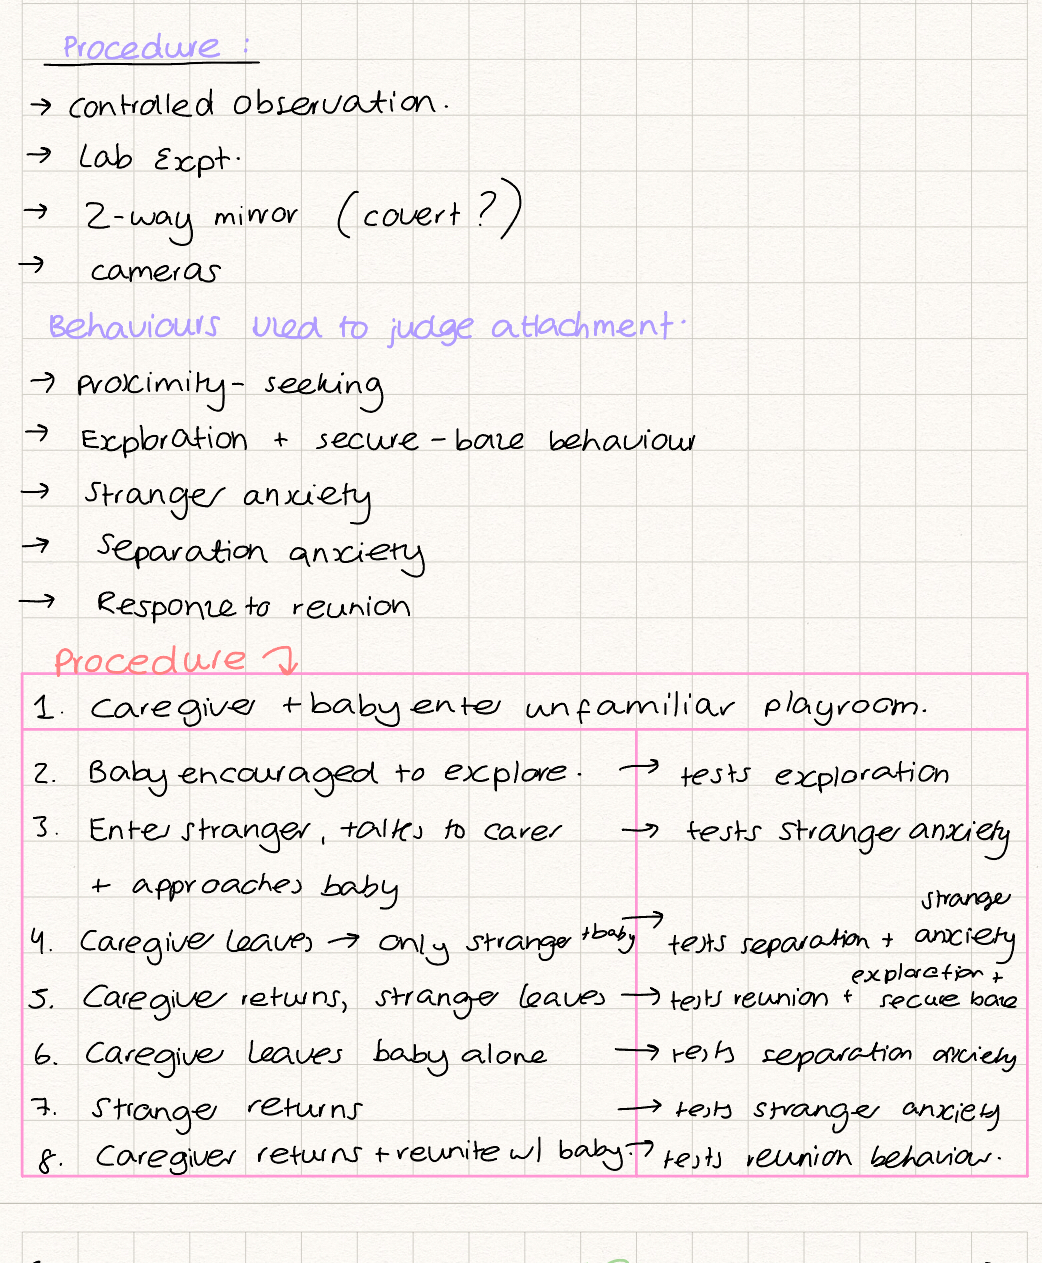 Procedure :
→ controlled observation.
→ Lab Expt.
→ 2-way mirror (covert?)
→ cameras
Behaviours used to judge attachment.
→ proximity-seeking
→ Exploration + secure-base behaviour
→ stranger anxiety
→ Separation anxiety
→ Response to reunion
Procedure ↴
1. Caregiver + baby enter unfamiliar playroom.
2. Baby encouraged to explore. → tests exploration
3. Enter stranger, talks to carer → tests stranger anxiety
+ approaches baby
4. Caregiver leaves → only stranger +baby → tests separation + stranger anxiety
5. Caregiver returns, stranger leaves → tests reunion + exploration + secure base
6. Caregiver leaves baby alone → tests separation anxiety
7. Stranger returns → tests stranger anxiety
8. Caregiver returns + reunite w/ baby. → tests reunion behaviour.